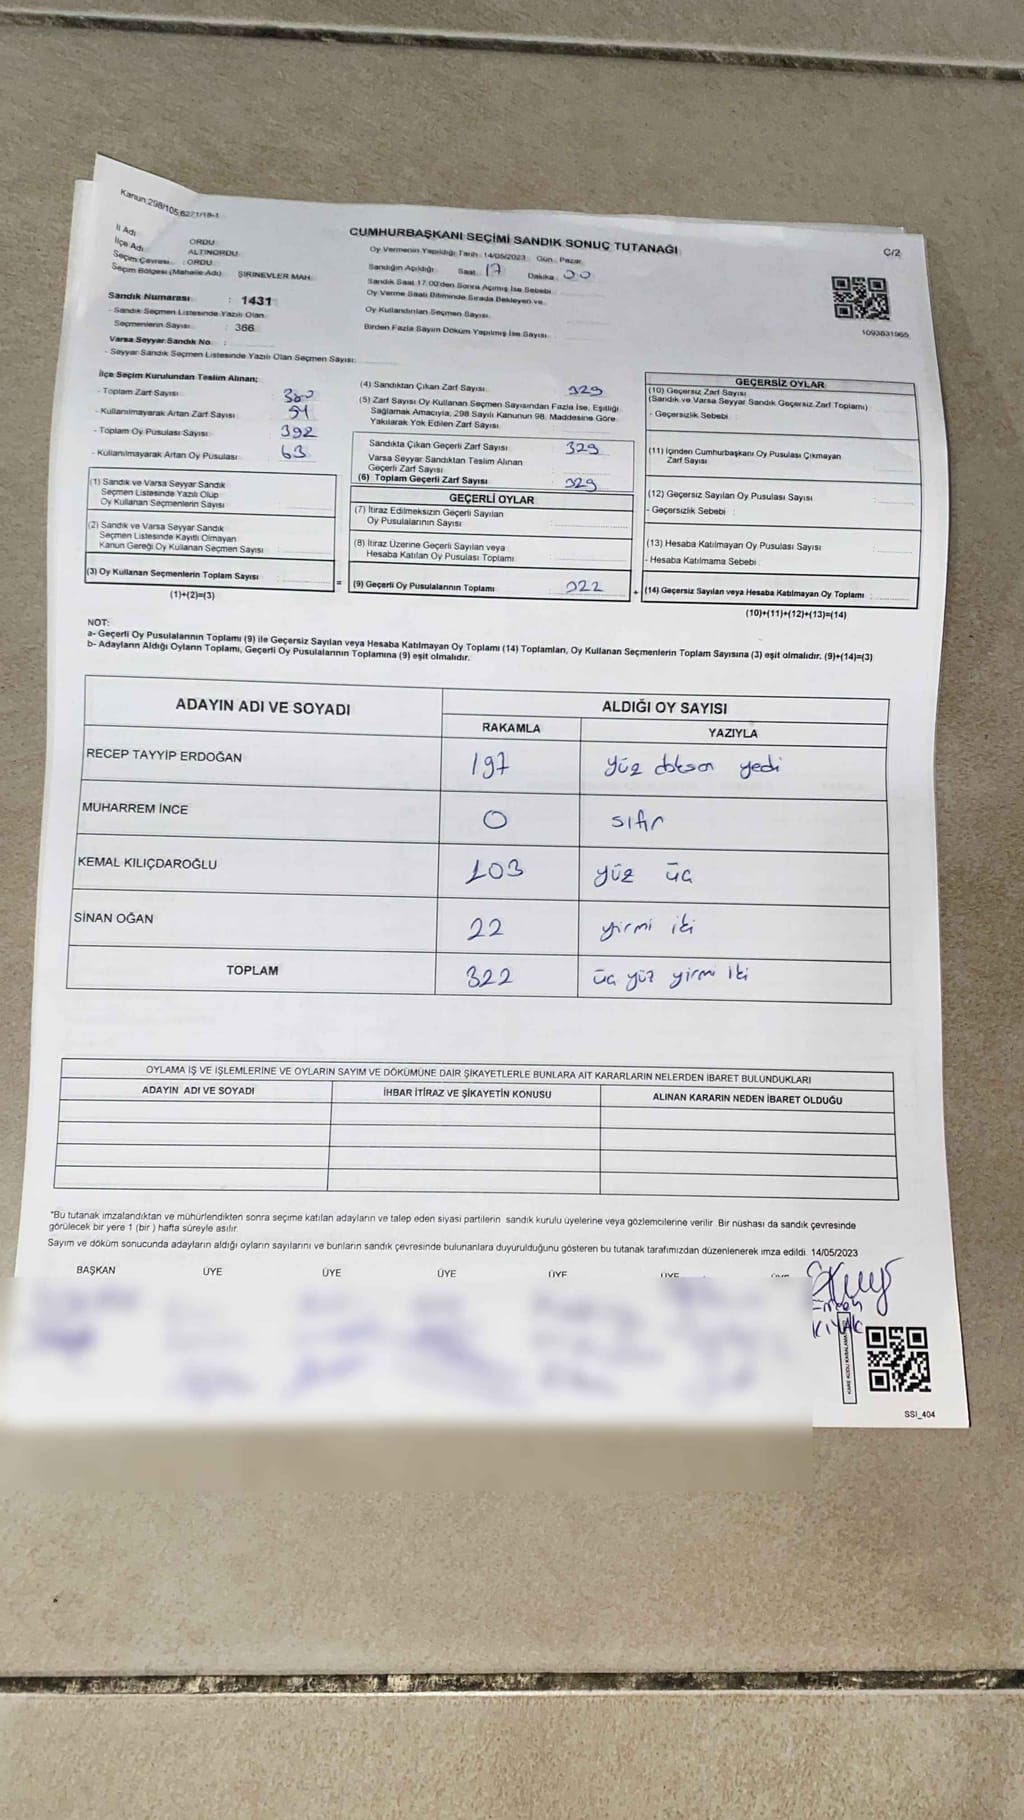 Kanun:298/105,6271/18-1
CUMHURBAŞKANI SEÇİMİ SANDIK SONUÇ TUTANAĞI
C/2
İl Adı : ORDU
İlçe Adı : ALTINORDU
Seçim Çevresi : ORDU
Seçim Bölgesi (Mahalle Adı) : ŞİRİNEVLER MAH.
Oy Vermenin Yapıldığı Tarih : 14/05/2023 Gün : Pazar
Sandığın Açıldığı Saat : 17 Dakika : 00
Sandık Saat 17:00'den Sonra Açımış İse Sebebi :
Oy Verme Saati Bitiminde Sırada Bekleyen ve
Oy Kullandırılan Seçmen Sayısı :
Birden Fazla Sayım Döküm Yapılmış İse Sayısı :
1093831965
Sandık Numarası : 1431
- Sandık Seçmen Listesinde Yazılı Olan
Seçmenlerin Sayısı : 366
Varsa Seyyar Sandık No :
- Seyyar Sandık Seçmen Listesinde Yazılı Olan Seçmen Sayısı:
İlçe Seçim Kurulundan Teslim Alınan;
- Toplam Zarf Sayısı : 380
- Kullanılmayarak Artan Zarf Sayısı : 51
- Toplam Oy Pusulası Sayısı : 392
- Kullanılmayarak Artan Oy Pusulası : 63
(1) Sandık ve Varsa Seyyar Sandık
Seçmen Listesinde Yazılı Olup
Oy Kullanan Seçmenlerin Sayısı :
(2) Sandık ve Varsa Seyyar Sandık
Seçmen Listesinde Kayıtlı Olmayan
Kanun Gereği Oy Kullanan Seçmen Sayısı :
(3) Oy Kullanan Seçmenlerin Toplam Sayısı :
(1)+(2)=(3)
=
(4) Sandıktan Çıkan Zarf Sayısı : 329
(5) Zarf Sayısı Oy Kullanan Seçmen Sayısından Fazla İse, Eşitliği
Sağlamak Amacıyla, 298 Sayılı Kanunun 98. Maddesine Göre
Yakılarak Yok Edilen Zarf Sayısı :
Sandıkta Çıkan Geçerli Zarf Sayısı : 329
Varsa Seyyar Sandıktan Teslim Alınan
Geçerli Zarf Sayısı :
(6) Toplam Geçerli Zarf Sayısı : 329
GEÇERLİ OYLAR
(7) İtiraz Edilmeksizin Geçerli Sayılan
Oy Pusulalarının Sayısı :
(8) İtiraz Üzerine Geçerli Sayılan veya
Hesaba Katılan Oy Pusulası Toplamı :
(9) Geçerli Oy Pusulalarının Toplamı : 322
+
GEÇERSİZ OYLAR
(10) Geçersiz Zarf Sayısı
(Sandık ve Varsa Seyyar Sandık Geçersiz Zarf Toplamı)
- Geçersizlik Sebebi :
(11) İçinden Cumhurbaşkanı Oy Pusulası Çıkmayan
Zarf Sayısı :
(12) Geçersiz Sayılan Oy Pusulası Sayısı :
- Geçersizlik Sebebi :
(13) Hesaba Katılmayan Oy Pusulası Sayısı :
- Hesaba Katılmama Sebebi :
(14) Geçersiz Sayılan veya Hesaba Katılmayan Oy Toplamı :
(10)+(11)+(12)+(13)=(14)
NOT:
a- Geçerli Oy Pusulalarının Toplamı (9) ile Geçersiz Sayılan veya Hesaba Katılmayan Oy Toplamı (14) Toplamları, Oy Kullanan Seçmenlerin Toplam Sayısına (3) eşit olmalıdır. (9)+(14)=(3)
b- Adayların Aldığı Oyların Toplamı, Geçerli Oy Pusulalarının Toplamına (9) eşit olmalıdır.
ADAYIN ADI VE SOYADI
ALDIĞI OY SAYISI
RAKAMLA YAZIYLA
RECEP TAYYİP ERDOĞAN 197 yüz doksan yedi
MUHARREM İNCE 0 sıfır
KEMAL KILIÇDAROĞLU 103 yüz üç
SİNAN OĞAN 22 yirmi iki
TOPLAM 322 üç yüz yirmi iki
OYLAMA İŞ VE İŞLEMLERİNE VE OYLARIN SAYIM VE DÖKÜMÜNE DAİR ŞİKAYETLERLE BUNLARA AİT KARARLARIN NELERDEN İBARET BULUNDUKLARI
ADAYIN ADI VE SOYADI İHBAR İTİRAZ VE ŞİKAYETİN KONUSU ALINAN KARARIN NEDEN İBARET OLDUĞU
*Bu tutanak imzalandıktan ve mühürlendikten sonra seçime katılan adayların ve talep eden siyasi partilerin sandık kurulu üyelerine veya gözlemcilerine verilir. Bir nüshası da sandık çevresinde
görülecek bir yere 1 (bir ) hafta süreyle asılır.
Sayım ve döküm sonucunda adayların aldığı oyların sayılarını ve bunların sandık çevresinde bulunanlara duyurulduğunu gösteren bu tutanak tarafımızdan düzenlenerek imza edildi. 14/05/2023
BAŞKAN ÜYE ÜYE ÜYE ÜYE ÜYE ÜYE
KIYAK
SSI_404